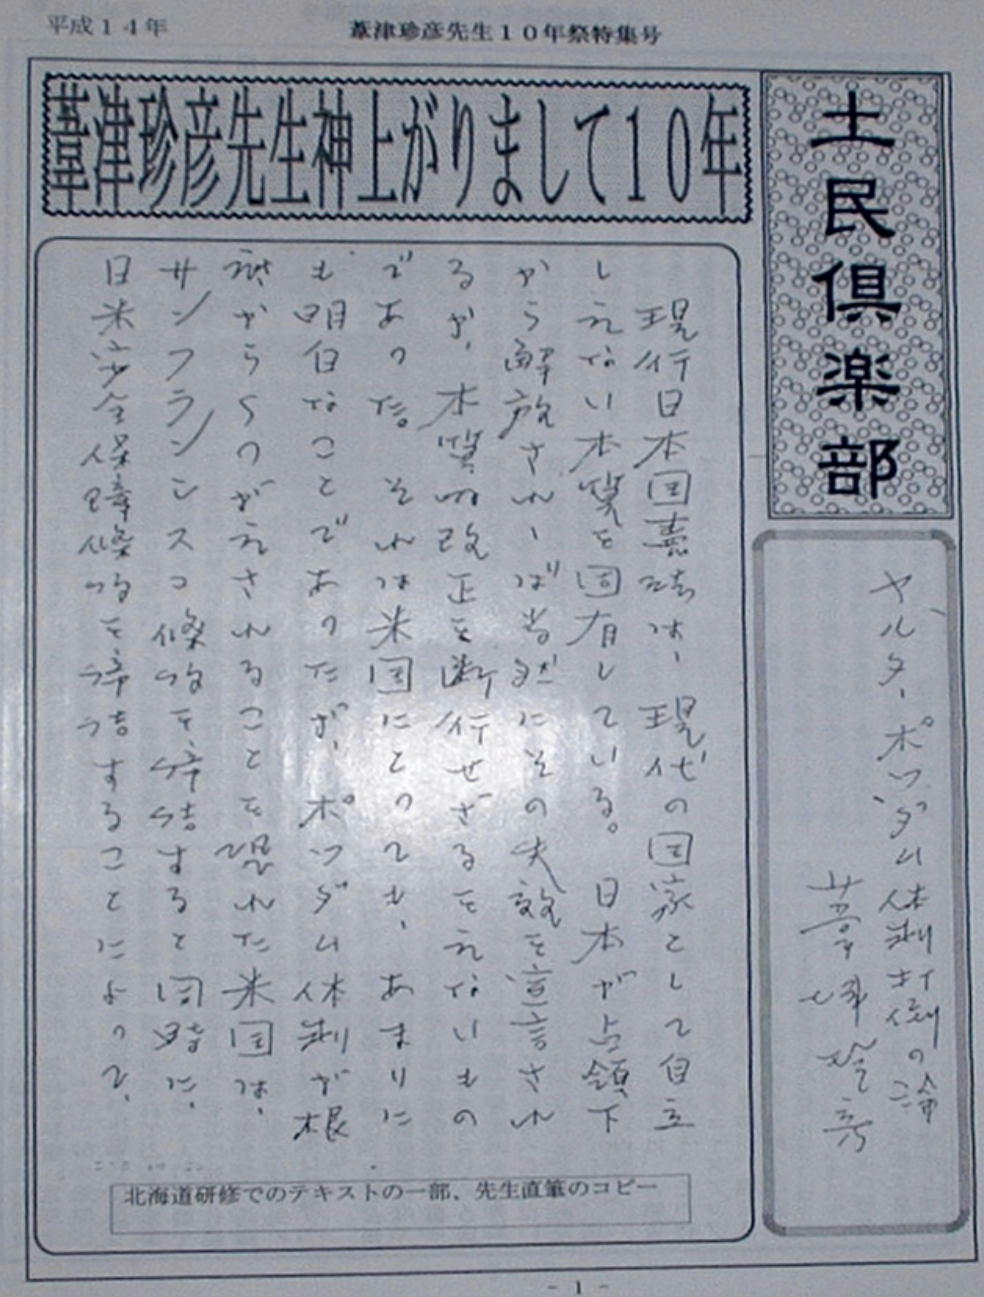 平成14年
葦津珍彦先生10年祭特集号
土民倶楽部
葦津珍彦先生神上がりまして10年
ヤルタ、ポツダム体制打倒の論
葦津珍彦
現行日本国憲法は、現代の国家として自立
しえない本質を固有している。日本が占領下
から解放されゝば当然にその失効を宣言され
るか、本質的改正を断行せざるをえないもの
であった。それは米国にとっても、あまりに
も明白なことであったが、ポツダム体制が根
底からくつがえされることを恐れた米国は、
サンフランシスコ條約を締結すると同時に、
日米安全保障條約を締結することによって、
北海道研修でのテキストの一部、先生直筆のコピー
- 1 -